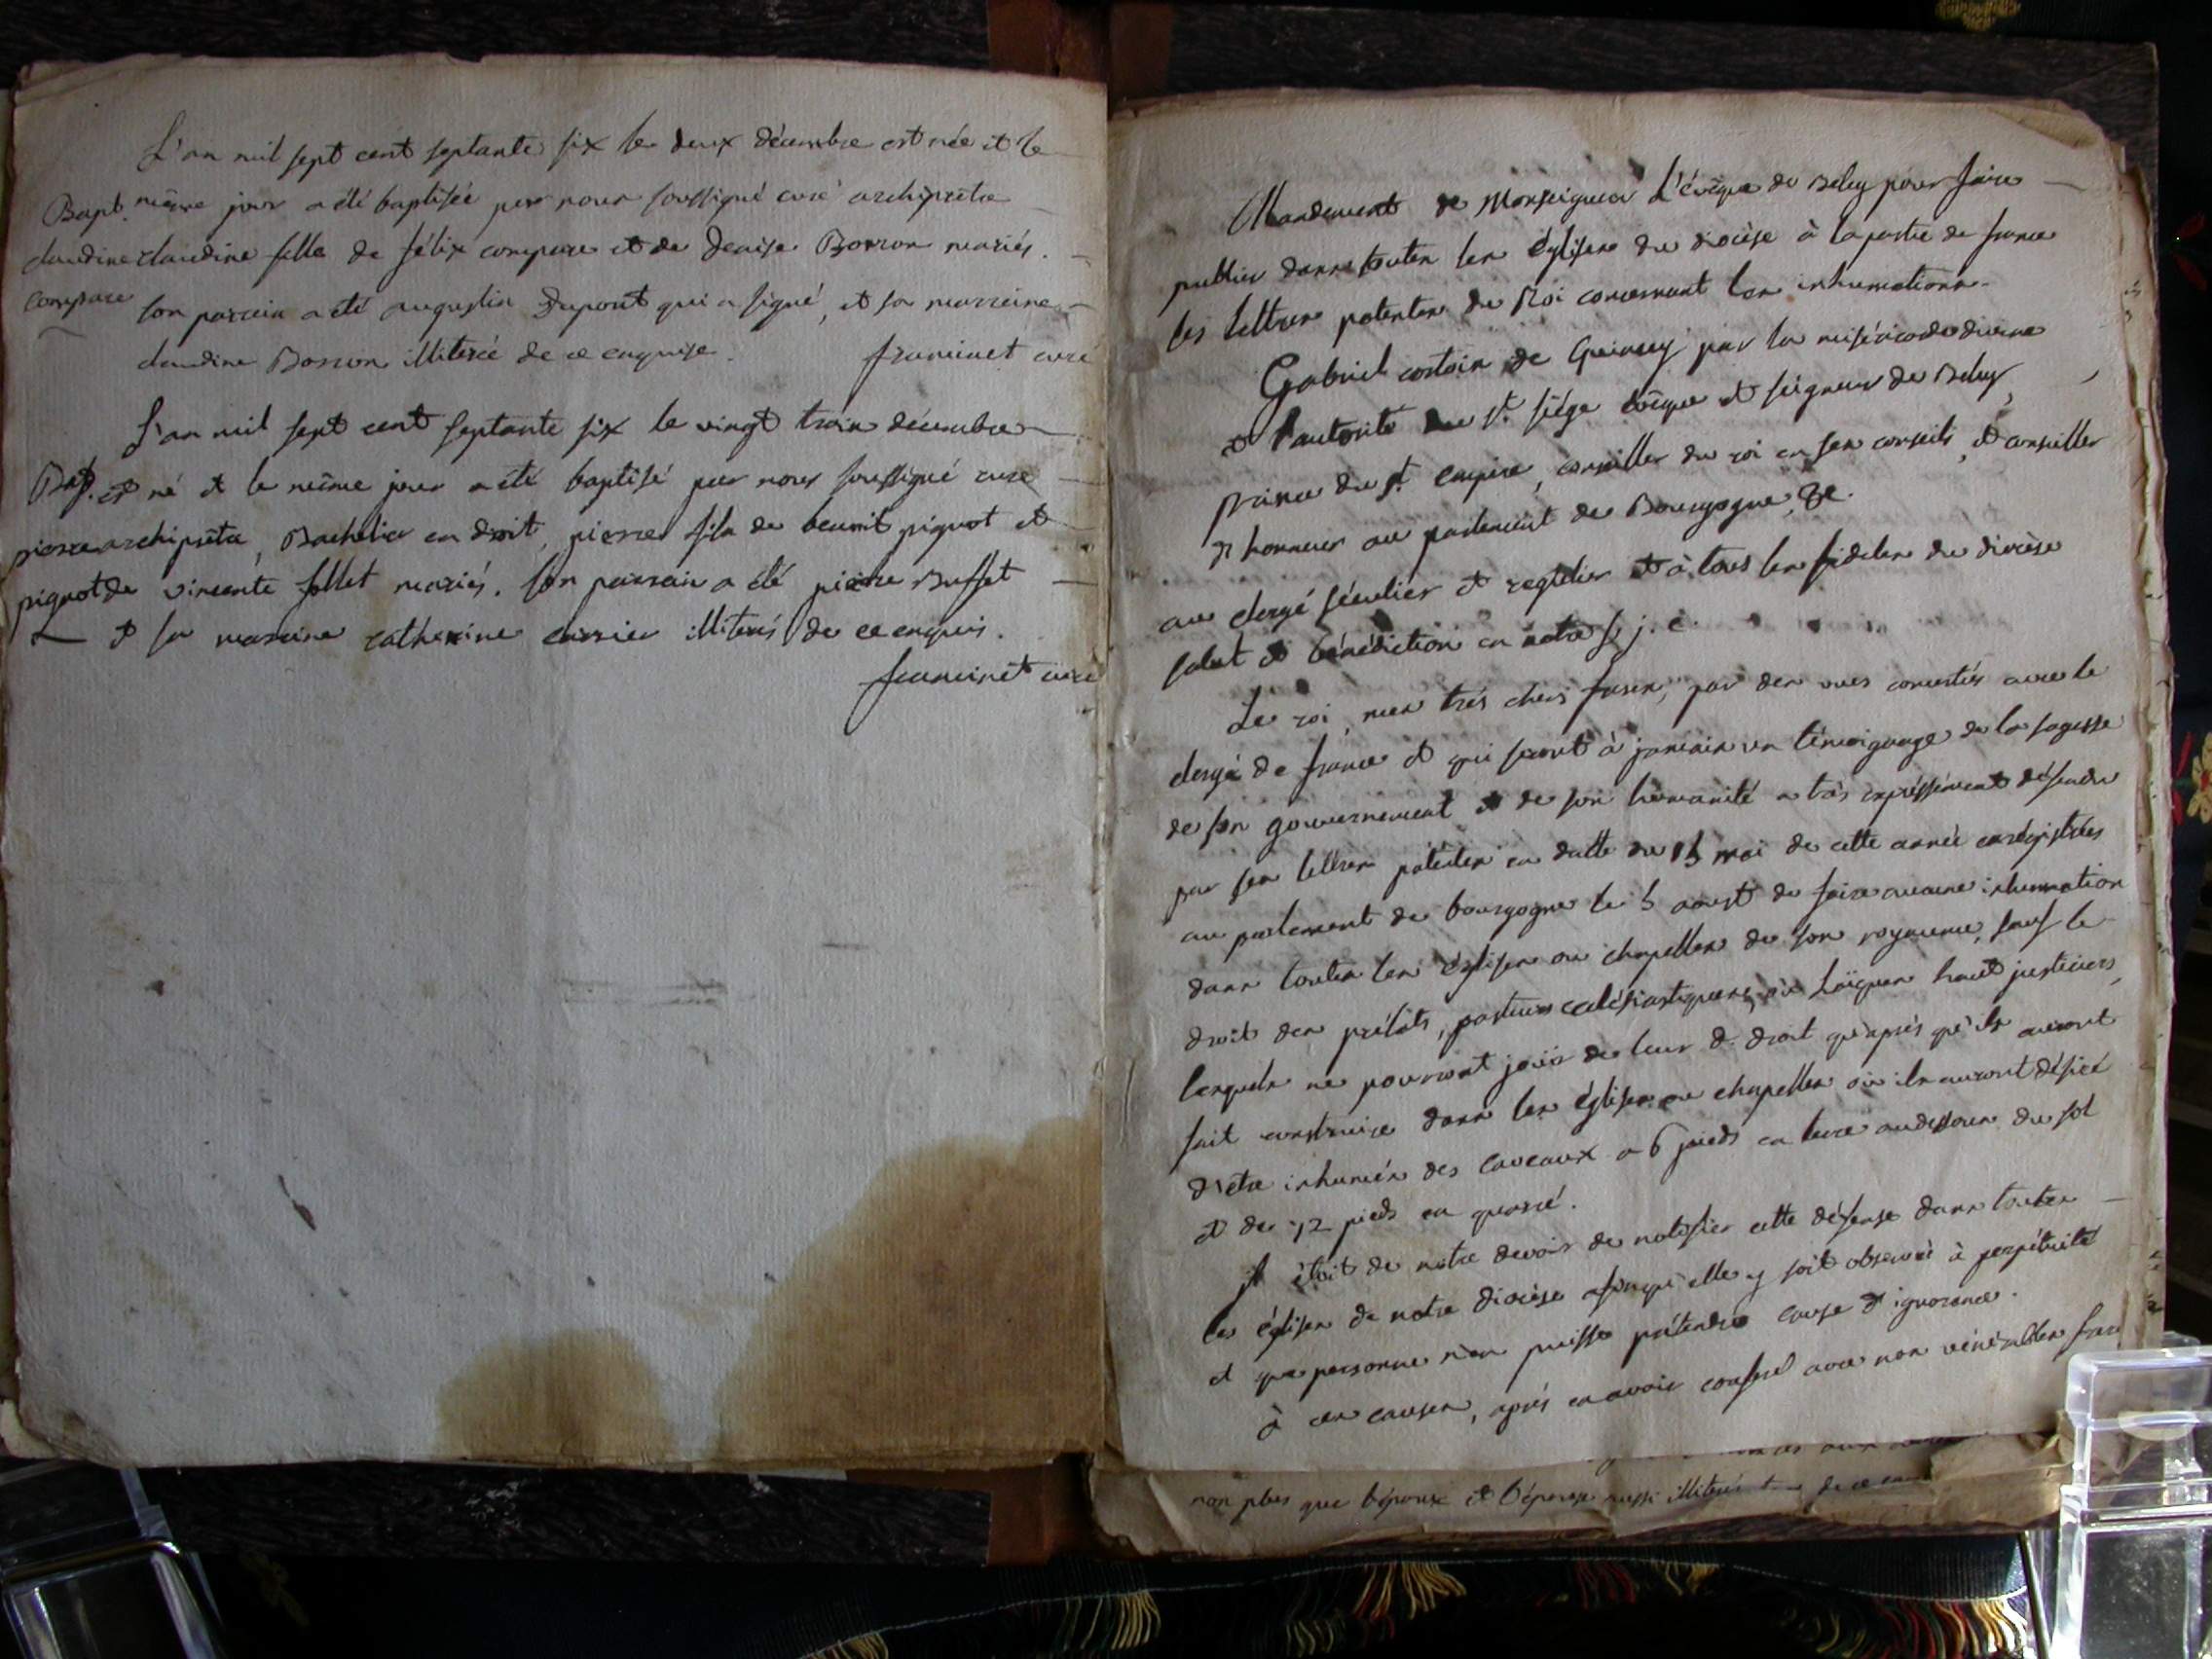 L'an mil sept cent septante six le deux décembre est née et le
Bapt. même jour a été baptisée par nous soussigné curé archiprêtre
claudine claudine fille de félix compare et de denise Borron mariés.
compare son parrain a été augustin Dupont qui a signé, et sa marreine
claudine Borron illiterée de ce enquise. franinet curé
L'an mil sept cent septante six le vingt trois décembre
Bapt. est né et le même jour a été baptisé par nous soussigné curé
pierre archiprêtre, Bachelier en droit, pierre fils de benoit pignot et
pignot de vincente follet mariés. son parrain a été pierre Buffet
et sa marraine catherine carrier illiterés de ce enquis.
franinet curé
Mandement de Monseigneur L'évêque de Beley pour faire
publier dans toutes les églises du diocèse à la partie de france
les lettres patentes du Roi concernant les inhumations.
Gabriel cortois de Quincey par la miséricorde divine
et l'autorité du St. siége évêque et seigneur de Beley,
prince du St. empire, conseiller du roi en ses conseils, et conseiller
d'honneur au parlement de Bourgogne, &c.
au clergé séculier et regulier et à tous les fideles du diocèse
salut et bénédiction en notre s. j. c.
Le roi, mes trés chers freres, par des vues concertés avec le
clergé de france et qui seront à jamais un témoignage de la sagesse
de son gouvernement et de son humanité a trés expréssément défendu
par ses lettres patentes en datte du 15 mai de cette année enrégistrées
au parlement de bourgogne le 5 aoust de faire aucune inhumation
dans toutes les églises ou chapelles de son royaume, sauf le
droit des prélats, pasteurs ecclésiastiques, ou laïques haut justiciers,
lesquels ne pourront jouir de leur d. droit qu'aprés qu'ils auront
fait construire dans les églises ou chapelles où ils auront désiré
d'être inhumés des caveaux a 6 pieds en terre audessous du sol
et de 12 pieds en quarré.
il étoit de notre devoir de notifier cette défense dans toutes
les églises de notre diocèse afinqu'elle y soit observée à perpétuité
et que personne n'en puisse prétendre cause d'ignorance.
à ces causes, aprés en avoir conferé avec nos vénérables frer
non plus que l'époux et l'épouse aussi illiterés de ce